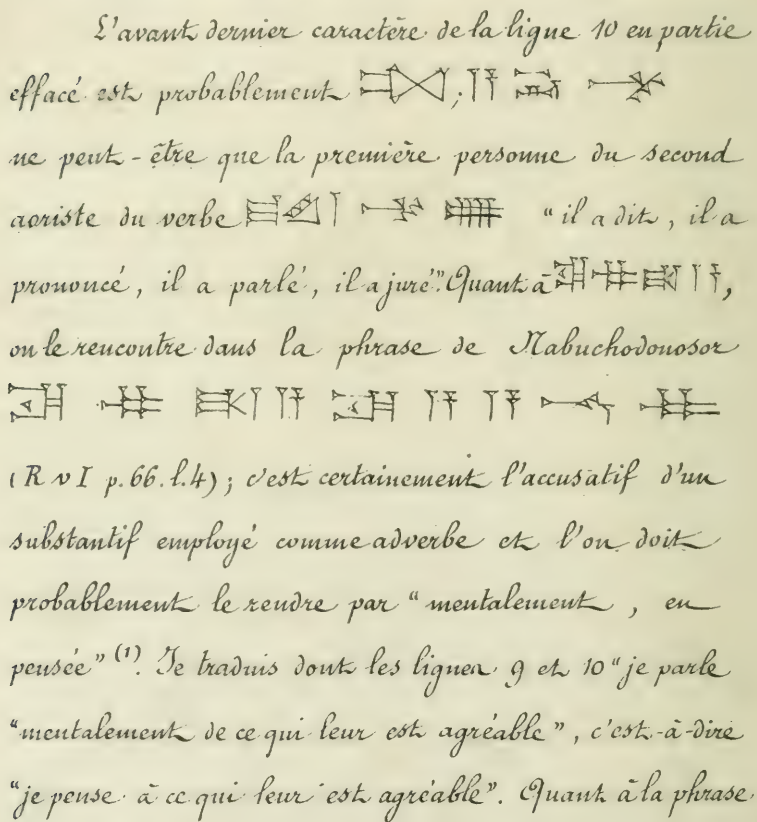 L'avant dernier caractère de la ligne 10 en partie
effacé est probablement ;
ne peut-être que la première personne du second
aoriste du verbe "il a dit, il a
prononcé, il a parlé, il a juré". Quant à ,
on le rencontre dans la phrase de Nabuchodonosor
(R v I p. 66. l. 4); c'est certainement l'accusatif d'un
substantif employé comme adverbe et l'on doit
probablement le rendre par "mentalement, en
pensée" (1). Je traduis dont les lignes 9 et 10 "je parle
"mentalement de ce qui leur est agréable", c'est-à-dire
"je pense à ce qui leur est agréable". Quant à la phrase